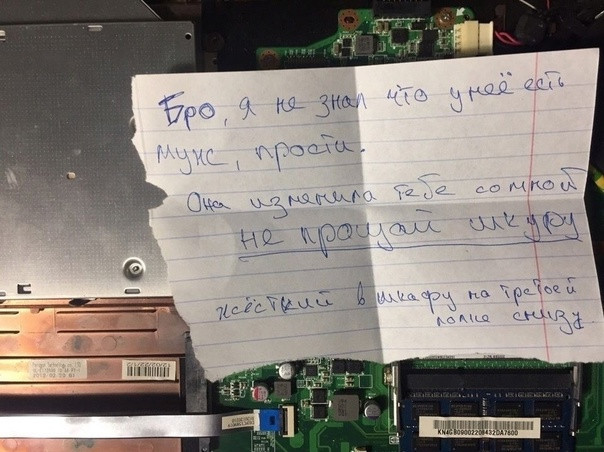 Бро, я не знал что у неё есть
муж, прости.
Она изменила тебе со мной
не прощай шкуру
жёсткий в шкафу на третьей
полке снизу.
12/02/22/112
KN4GB0900220S432DA7600